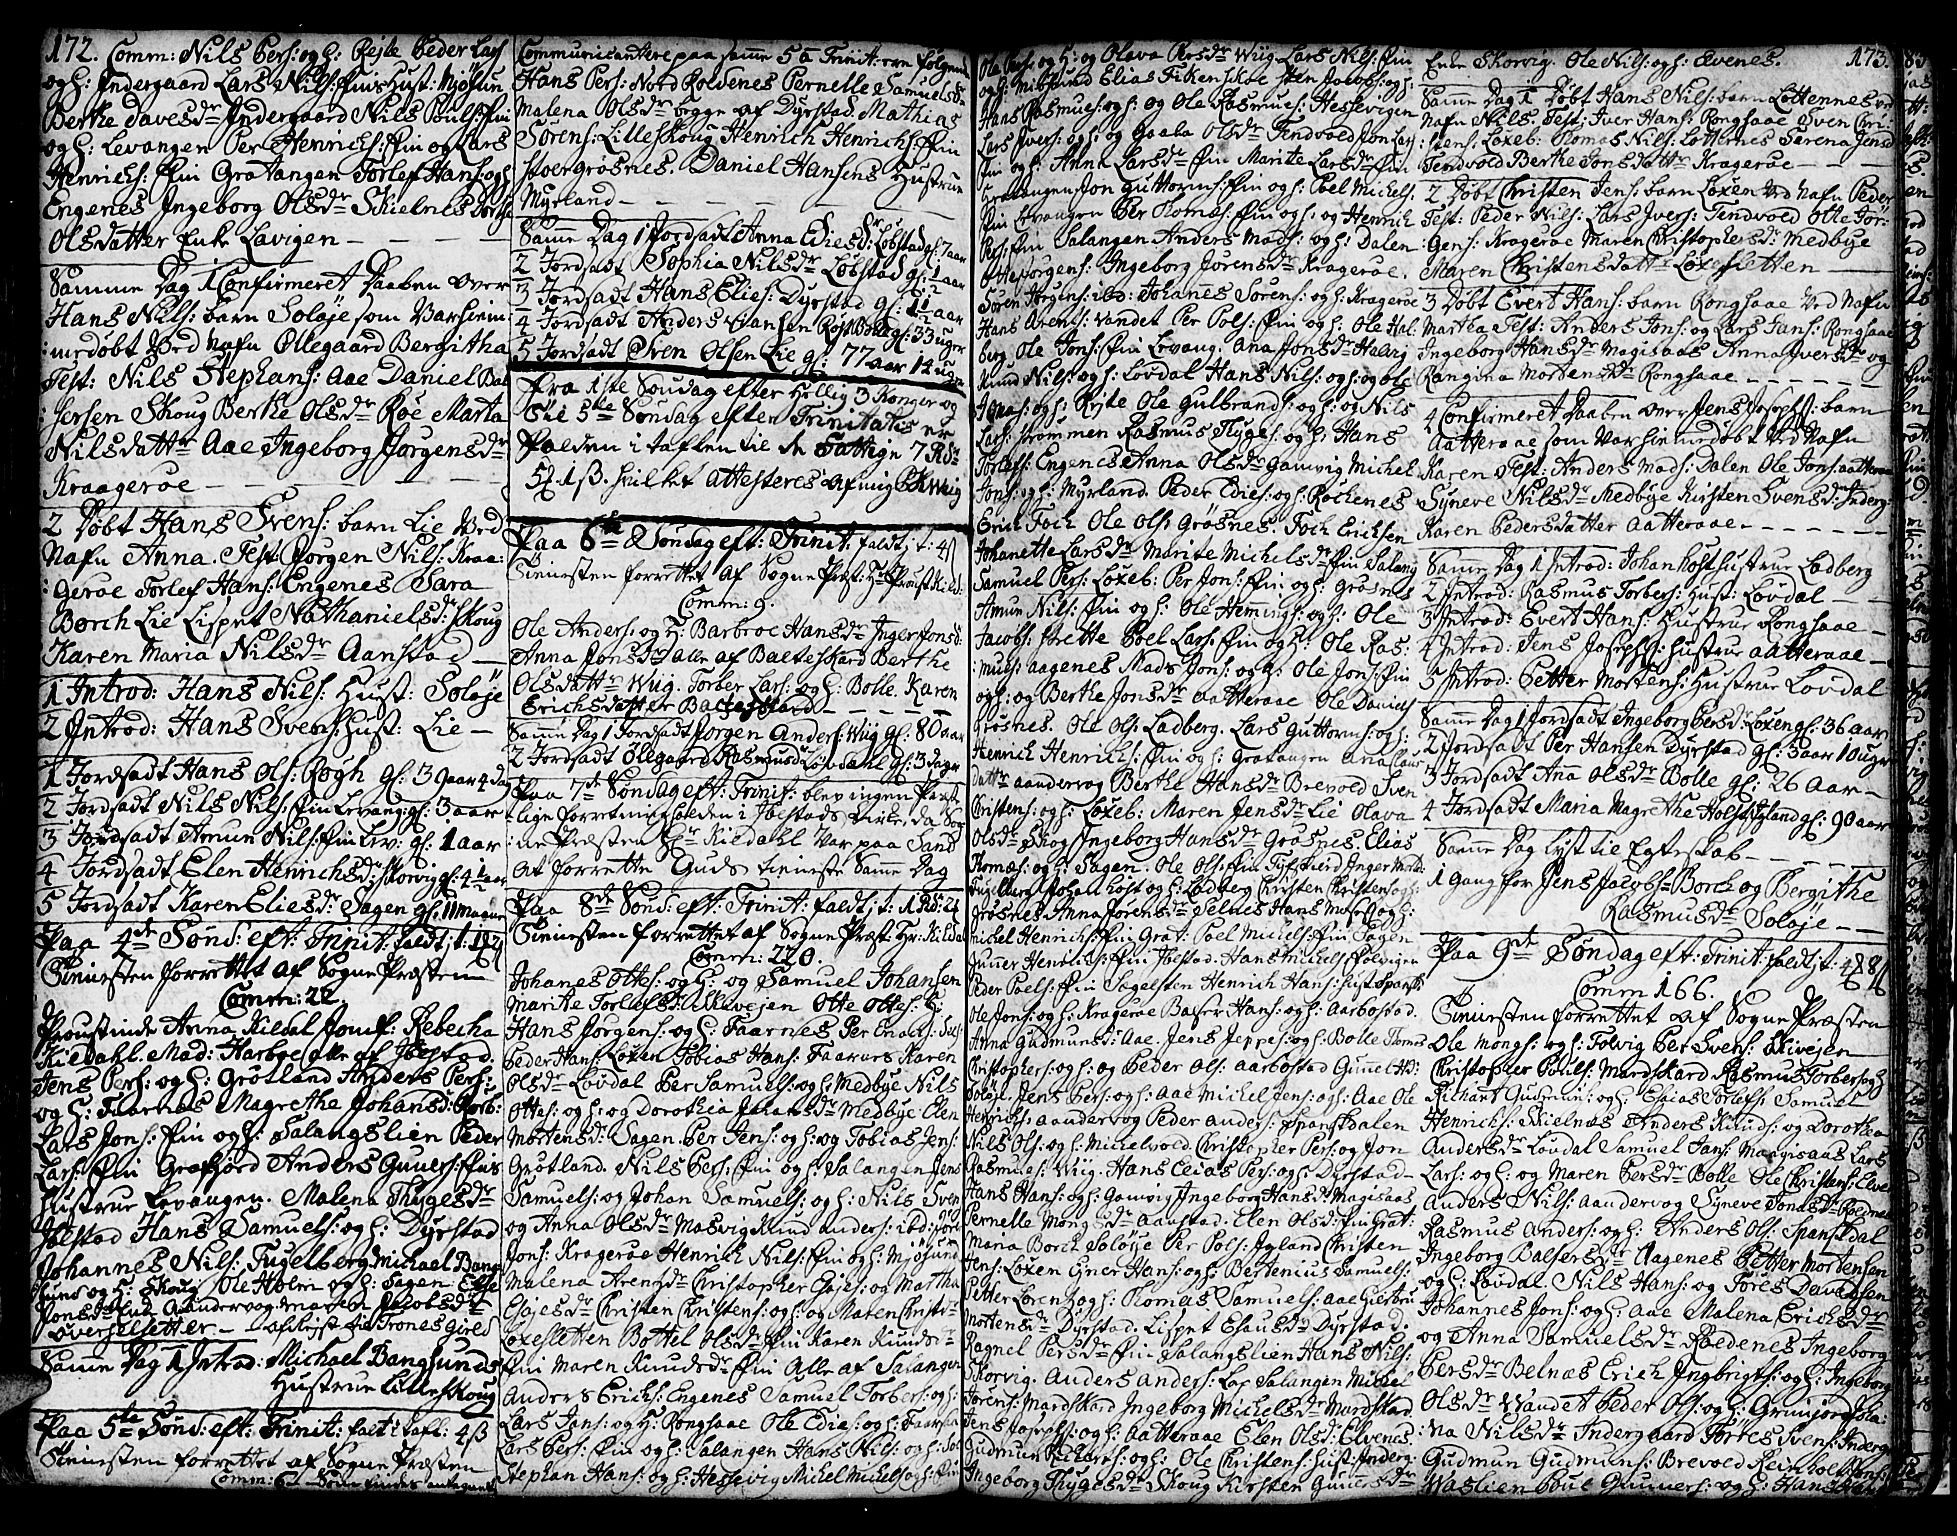 172. Comm: Nils Pers: og H: Rejte Peder Lars
og H: Indergaard Lars Nils: fin Hust: Mjösun
Berthe Davesdr Indergaard Nils Pouls: fin
og H: Levangen Per Henrichs: fin og Lars
Henrichs: fin Gratangen Torlef Hans: og H
Engenes Ingeborg Olsdr Skielnes Dorthe
Olsdatter Enke Lavigen
Samme Dag 1 Confirmeret Daaben over
Hans Nils: barn Soløje som var hiem-
medøbt ved Nafn Ollegaard Bergitha
Test: Nils Stephans: Aae Daniel Bal
sersen Skoug Berthe Olsdr Røe Marta
Nilsdattr Aae Ingeborg Jørgensdr
Kraagerøe
2 Døbt Hans Svens: barn Lie Ved
Nafn Anna. Test: Jørgen Nils: Kraa:
gerøe Torlef Hans: Engenes Sara
Borch Lie Lisset Nathanielsdr Skoug
Karen Maria Nilsdr Aanstad
1 Introd: Hans Nils: Hust: Soløje
2 Introd: Hans Svens: hust: Lie
1 Jordsadt Hans Ols: Røgh gl: 39 aar 4 dag
2 Jordsadt Nils Nils: fin Levang: gl: 3 aar
3 Jordsadt Amun Nils: fin Lev: gl: 1 aar
4 Jordsadt Elen Henrichsd: Skorvig gl: 4½ aar
5 Jordsadt Karen Eliesdr: Sagen gl: 11 Maaner
Paa 4de Sønd: eft: Trinit: faldt j t:
Tienesten forrettet af Sogne Præsten
Comm: 22.
Proustinde Anna Kildal Jomf: Rebecha
Kildahl. Mad: Harboe alle af Ibestad.
Jens Pers: og H: Grøtland Anders Pers:
og H: Faarnes Magrethe Johansd:
Lars Jons: fin og H: Salangslien Peder
Lars: fin Grafjord Anders Guners: fins
Hustrue Levangen. Malena Thygesdr
Ibestad Hans Samuels: og H: Dyrstad
Johannes Nils: Fugelberg Michael Bang
sund og H: Skoug Ole Holm og H: Sagen
Jonsdr Enke Aandervog Maren Jacobsdr
Samme Dag 1 Introd: Michael Bangsunds
Hustrue Lilleskoug
Paa 5te Sønd: eft: Trinit: falt i tafl: 4 ß
Tienesten forrettet af Sogne Præsten
Communicantere paa samme 5te Trinit: ere følgende
Hans Pers: Nord Roldenes Pernelle Samuelsdr
Malena Olsdr begge af Dyrstad. Mathias
Sørens: Lilleskoug Henrich Henrichs: fin
Stoergrøsnes. Daniel Hansens Hustrue
Myrland
Samme Dag 1 Jordsadt Anna Eliesdr: Løbstad gl: 7 aar
2 Jordsadt Sophia Nilsdr Løbstad gl: ½ aar
3 Jordsadt Hans Elies: Dyrstad gl: 1½ aar
4 Jordsadt Anders Hansen gl: 33 uger
5 Jordsadt Sven Olsen Lie gl: 77 aar 12 uger
Fra 1ste Søndag efter Hellig 3 Konger og
til 5te Søndag efter Trinitatis er
falden i taflen til de Fattige 7 Rdr
1 ß. hvilket attesteres af mig
Paa 6te Søndag eft: Trinit: faldt j t: 4 ß
Tienesten forrettet af Sogne Præst: Hr Proust Kild:
Comm: 9.
Ole Anders: og H: Barbroe Hansdr Inger Jonsd:
Anna Jonsdr alle af Balteskard Berthe
Olsdattr Wiig. Torber Lars: og H: Bolle. Karen
Erichsdatter Balteskard
Samme Dag 1 Jordsadt Jorgen Anders: Wiig gl: 80 aar
2 Jordsadt Ollegaard Rasmusdr Løvdahl gl: 3 dage
Paa 7de Søndag eft: Trinit: blev ingen Præst-
lige forretning holden i Ibestads Kirke, da Sog
ne Præsten Hr Kildahl var paa Sand
at forrette Guds tieniste samme Dag
Paa 8de Sønd: eft: Trinit: faldt j t: 1 Rd:
Tienisten forrettet af Sogne Præst: Hr: Kildal
Comm: 220.
Johanes Ottes: og H: og Samuel Johansen
Marite Torlefsd: Alleveien Otte Ottes:
Hans Jørgens: og H: Faarnes Per
Peder Hans: Løxen Tobias Hans: Faarnes Karen
Olsdr Løvdal Per Samuels: og H: Medbye Nils
Ottes: og H: og Dorothea Johansdr Medbye Elen
Mortensdr Sagen. Per Jens: og H: og Tobias Jens:
Grøtland. Nils Pers: fin og H: Salangen Jens
Samuels: og Johan Samuels: og H: Nils Sven
og Anna Olsdr Masvig Knud Anders: ibd:
Jons: Kragerøe Henrich Nils: fin og H: Mjøsund
Malena Arensdr Christopher Esajes: og Martha
Esajesdr Christen Christens: og H: og Maren Christi-
Løxesletten Bottel Olsdr fin Karen Knudsdr
fin Maren Knudsdr fin alle af Salangen
Anders Erichs: Engenes Samuel Torbers: og H:
Lars Jans: og H: Ronghaae Ole Edis: og H: Faar
Lars Pers: fin og H: Salangen Hans Nils: og H: Sal
Stephan Hans: og H: Hessevig Michel Michels: og H: fin
Ole Lars: og H: og Olava Persdr Wiig Lars Nils: fin
og H: Mibsund Elias Fikenskoe Sten Jacobs: og H:
Hans Rasmus: og H: og Ole Rasmus: Hessevigen
Lars Ivers: og H: og Gaaba Olsdr Tendvold Jon Lars
fin og H: Anna Larsdr fin Marite Larsdr fin
Gratangen Jon Guttorms: fin og H: Poel Michels:
fin Levangen Per Thomæs: fin og H: og Henrich
Pers: fin Salangen Anders Mads: og H: Dalen
Otte Jorgens: Ingeborg Jørensdr Kragerøe.
Søren Jørgens: ibd: Johanes Sørens: og H: Kragerøe
Hans Arents: Vandet Per Pols: fin og H: Ole Hal-
berg Ole Jons: fin Levang: Ana Jonsdr Hallvig
Knud Nils: og H: Løvdal Hans Nils: og H: og Ole
Jonas: og H: Rejte Ole Gulbrands: og H: og Nils
Lars: Strømmen Rasmus Thyges: og H: Hans
Torlefs: Engenes Anna Olsdr Gamvig Michel
Jons: og H: Myrland. Peder Edies: og H: Rochenes
Erich Foch Ole Ols: Grøsnes. Foch Erichsen
Johanette Larsdr Marite Michelsdr fin Salang
Samuel Pers: Løxeb: Per Jons: fin og H: Grøsnes
Amun Nils: fin og H: Ole Hemings: og H: Ole
Jacobs: Strette Poel Lars: fin og H: Ole Ras:
mus: Aagenes Mads Jons: og H: Ole Jons: fin
og H: og Berthe Jonsdr Aatteraae Ole Daniels
Grøsnes. Ole Ols: Ladberg. Lars Guttorms: og H:
Henrich Henrichs: fin og H: Gratangen Ana Claus
dattr Aandervog Berthe Hansdr Brevold Sven
Christens: og H: Løxeb: Maren Jensdr Lie Olava
Olsdr Skog Ingeborg Hansdr Grøsnes. Elias
Thomæs: og H: Sagen. Ole Ols: fin
Fugelberg Johan Kost og H: Ladberg Christen Christens: og H:
Grøsnes Anna Jørensdr Selnes Hans
Michel Henrichs: fin Grat: Poel Michels: fin Sagen
Guner Henrichs: fin Ibestad. Hans Michels: Foldvigen
Peder Poels: fin Sagelsten Henrich Hans: hust: Spansd:
Ole Jons: og H: Kragerøe Balser Hans: og H: Aarbostad.
Anna Gudmunsd: Aae. Jens Jeppes: og H: Bolle Toms
Christophers: og H: og Peder Ols: Aarbostad
Soløje. Jens Pers: og H: Aae Michel Jens: og H: Aae Ole
Henrichs: Aandervog Peder Anders: Spanskdalen
Nils Ols: og H: Mickelvold. Christopher Pers: og Jon
Rasmus: Wiig. Hans Elias Pers: og H: Dyrstad
Hans Hans: og H: Gamvig Ingeborg Hansdr Magisaas
Pernelle Mongsdr Aanstad. Elen Olsd: fin Grat:
Maria Borch Soløje Per Pols: Igland Christen
Jens: Løxen Einer Hans: og H: Bertenius Samuels:
Petter Lorenz og H: Thomas Samuels: Aae
Mortensdr Dyrstad. Lisset Esausdr Dyrstad.
Ragnel Persdr fin Salangslien Hans Nils:
Skorvig. Anders Anders: Lap Salangen Michel
Jørens: Mardskard Ingeborg Michelsdr Mardskad
Jens Josephs: og H: Aatteraae Elen Olsd: Elvenes.
Gudmun Richarts: og H: Ole Christens: hust: Inderg:
Ingeborg Thygesdr Skoug Kirsten Gunersdr
Enke Skorvig. Ole Nils: og H: Evenes. 173.
Samme Dag 1 Døbt Hans Nils: barn Løttennes ved
Nafn Nils. Test: Iver Hans: Ronghaae Sven Chri-
stens: Løxeb: Thomas Nils: Løtternes Sørena Jensd
Tendvold Berthe Jonsdattr Kragerøe
2 Døbt Christen Jens: barn Løxen ved Nafn Peder
Test: Peder Nils: Lars Ivers: Tendvold Otte Jør-
Gens: Kragerøe Maren Christophersdr Medbye
Maren Christensdattr Løxesletten
3 Døbt Evert Hans: barn Ronghaae Ved Nafn
Martha Test: Anders Jons: og Lars Jans: Ronghaae
Ingeborg Hansdr Magisaas Anna Iversdr og
Rangina Mortensdr Ronghaae
4 Confirmeret Daaben over Jens Josephs: barn
Aatteraae som var hiemmedøbt Ved Nafn
Karen Test: Anders Mads: Dalen Ole Jons: Aatteraae
Syneve Nilsdr Medbye Kirsten Svensd: Inderg:
Karen Pedersdatter Aatteraae
Samme Dag 1 Introd: Johan Kost hustrue Ladberg
2 Introd: Rasmus Torbers: Hust: Løvdal
3 Introd: Evert Hans: Hustrue Ronghaae
4 Introd: Jens Josephs: hustrue Aatteraae
5 Introd: Petter Mortens: Hustrue Løvdal
Samme Dag 1 Jordsadt Ingeborg Persdr: Løxen gl: 36 aar
2 Jordsadt Per Hansen Dyrstad gl: 3 aar 10 uger
3 Jordsadt Ana Olsdr Bolle gl: 26 Aar
4 Jordsadt Maria Magrethe Holst Igland gl: 90 aar
Samme Dag lyst til Egteskab
1 Gang for Jens Jacobs: Borch og Bergithe
Rasmusdr Soløje
Paa 9de Søndag eft: Trinit: faldt j t: 4 8 ß
Comm 166.
Tienisten forrettet af Sogne Præsten
Ole Mongs: og H: Folvig Per Svens: Skivejen
Christopher Pouls: Mardskard Rasmus Torbers: og H
Richart Gudmuns: og H: Esaias Torlefs: Samuel
Henrichs: Skielnæs Anders Knuds: og Dorothea
Andersdr Løvdal Samuel Hans: Maagisaas Lars
Lars: og H: og Maren Persdr Bolle Ole Christens: Elve
Anders Nils: Aandervog Synneve Jonasdr Roldnes
Rasmus Anders: og H: Anders Ols: Spanskdal
Ingeborg Balsersdr Aagenes Petter Mortensen
og H: Løvdal Nils Hans: og Tøres Davidsen
Johannes Jons: og H: Aae Malena Erichsdr
og Anna Samuelsdr Roldenes Ingeborg
Persdr Belnæs Erich Ingbrigts: og H: Ingeborg
Olsdr Vandet Peder Ols: og H: Grunfjord Joha-
na Nilsdr Indergaard Tørres Svens: Inderg
Gudmun Gudmuns: Brevold Reinholt Jons:
Waslien Poul Guners: og H: Hans